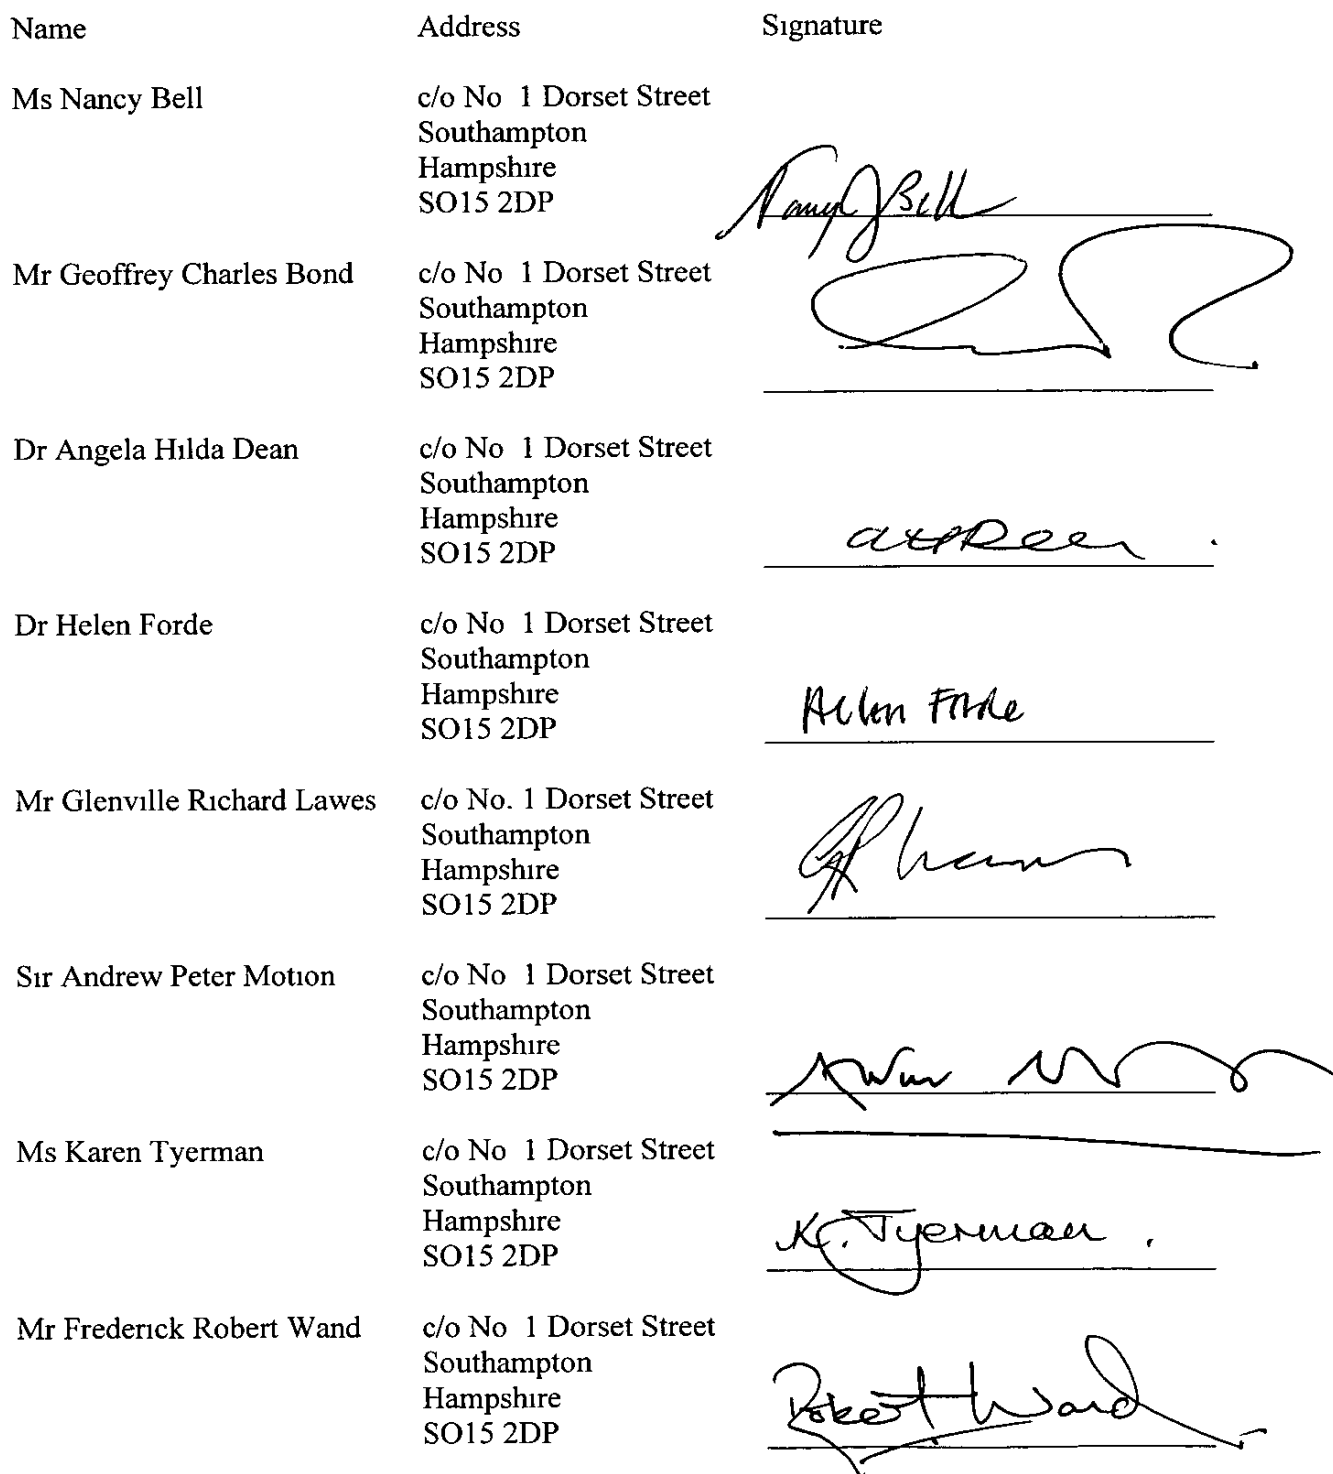 Name Address Signature
Ms Nancy Bell c/o No 1 Dorset Street
Southampton
Hampshire
SO15 2DP
Nancy J Bell
Mr Geoffrey Charles Bond c/o No 1 Dorset Street
Southampton
Hampshire
SO15 2DP
Dr Angela Hilda Dean c/o No 1 Dorset Street
Southampton
Hampshire
SO15 2DP
AHDean
Dr Helen Forde c/o No 1 Dorset Street
Southampton
Hampshire
SO15 2DP
Helen Forde
Mr Glenville Richard Lawes c/o No. 1 Dorset Street
Southampton
Hampshire
SO15 2DP
Sir Andrew Peter Motion c/o No 1 Dorset Street
Southampton
Hampshire
SO15 2DP
Ms Karen Tyerman c/o No 1 Dorset Street
Southampton
Hampshire
SO15 2DP
K. Tyerman.
Mr Frederick Robert Wand c/o No 1 Dorset Street
Southampton
Hampshire
SO15 2DP
Robert Wand